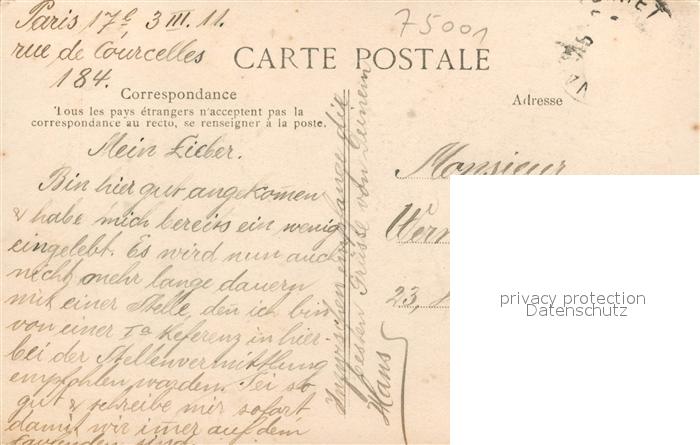 Paris 17e 3 III. 11.
rue de Courcelles
184.
75001
CARTE POSTALE
Correspondance
Tous les pays étrangers n'acceptent pas la
correspondance au recto, se renseigner à la poste.
Adresse
Mein Lieber.
Bin hier gut angekomen
& habe mich bereits ein wenig
eingelebt. Es wird nun auch
nicht mehr lange dauern
mit einer Stelle, den ich bin
von einer Ia Referenz in hier-
bei der Stellenvermittlung
empfohlen worden. Sei so
gut & schreibe mir sofort
damit wir imer auf dem
Laufenden sind
Inzwischen empfange die
besten Grüsse von Deinem
Hans
Monsieur
Wern
23,
privacy protection
Datenschutz